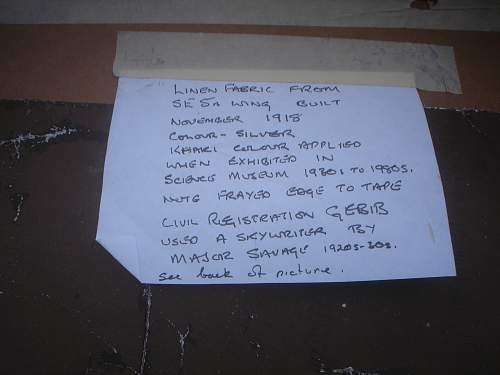 LINEN FABRIC FROM
SE5A WING BUILT
NOVEMBER 1918
COLOUR - SILVER
KHAKI COLOUR APPLIED
WHEN EXHIBITED IN
SCIENCE MUSEUM 1930s TO 1980s.
NOTE FRAYED EDGE TO TAPE
CIVIL REGISTRATION GEBIB
USED A SKYWRITER BY
MAJOR SAVAGE 1920s-30s.
see back of picture.